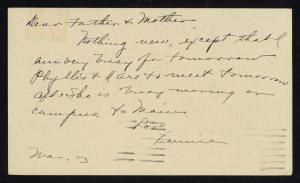 Dear Father & Mother,
Nothing new, except that I
am very busy for tomorrow
Phyllis & I are to meet tomorrow
and she is busy moving on
campus to Main
Love
Fannie
Mar. 3